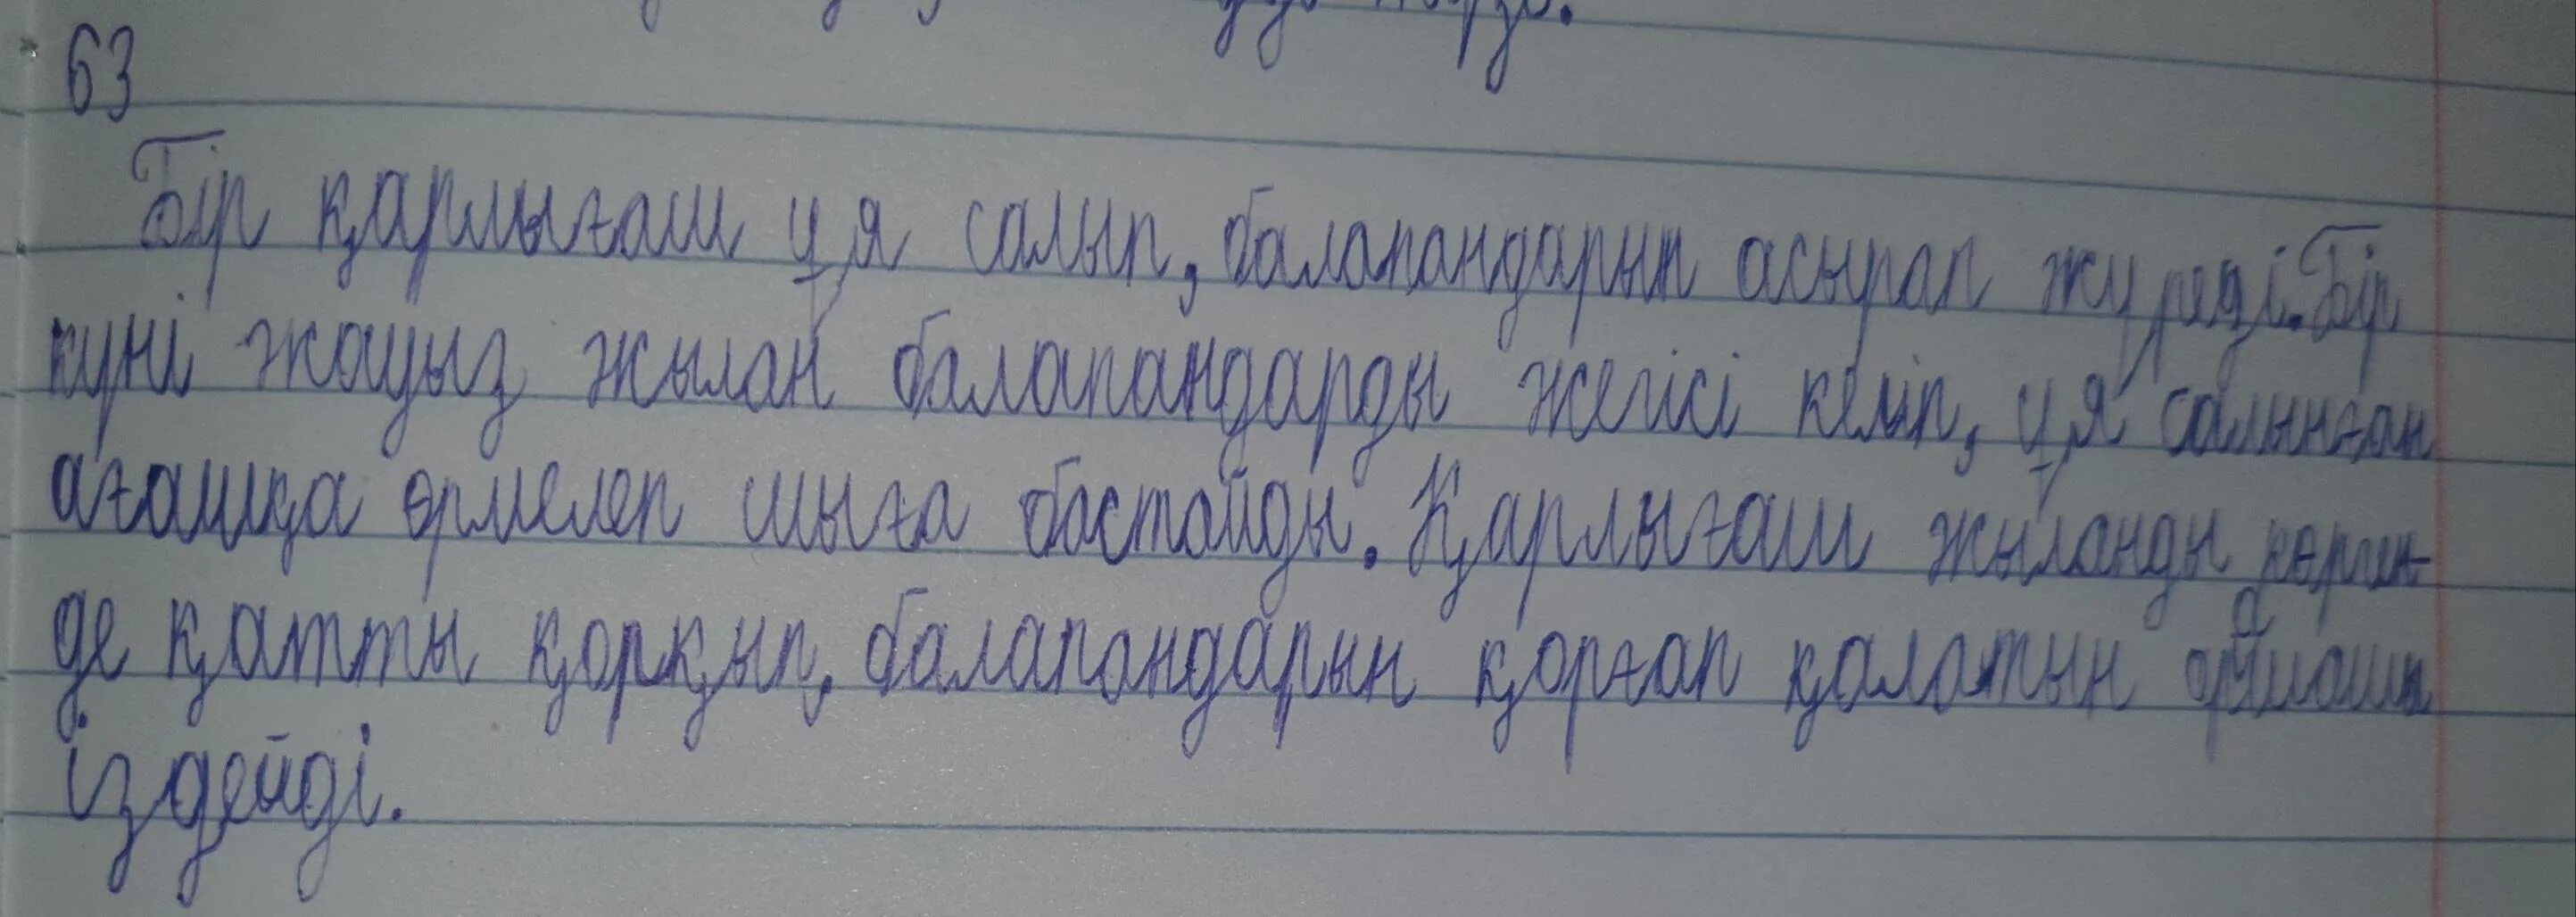 63
Бір қарлығаш ұя салып, балапандарын асырап жүреді. Бір
күні жауыз жылан балапандарды жегісі келіп, ұя салынған
ағашқа өрмелеп шыға бастайды. Қарлығаш жыланды көрген-
де қатты қорқып, балапандарын қорғап қалатын
іздейді.